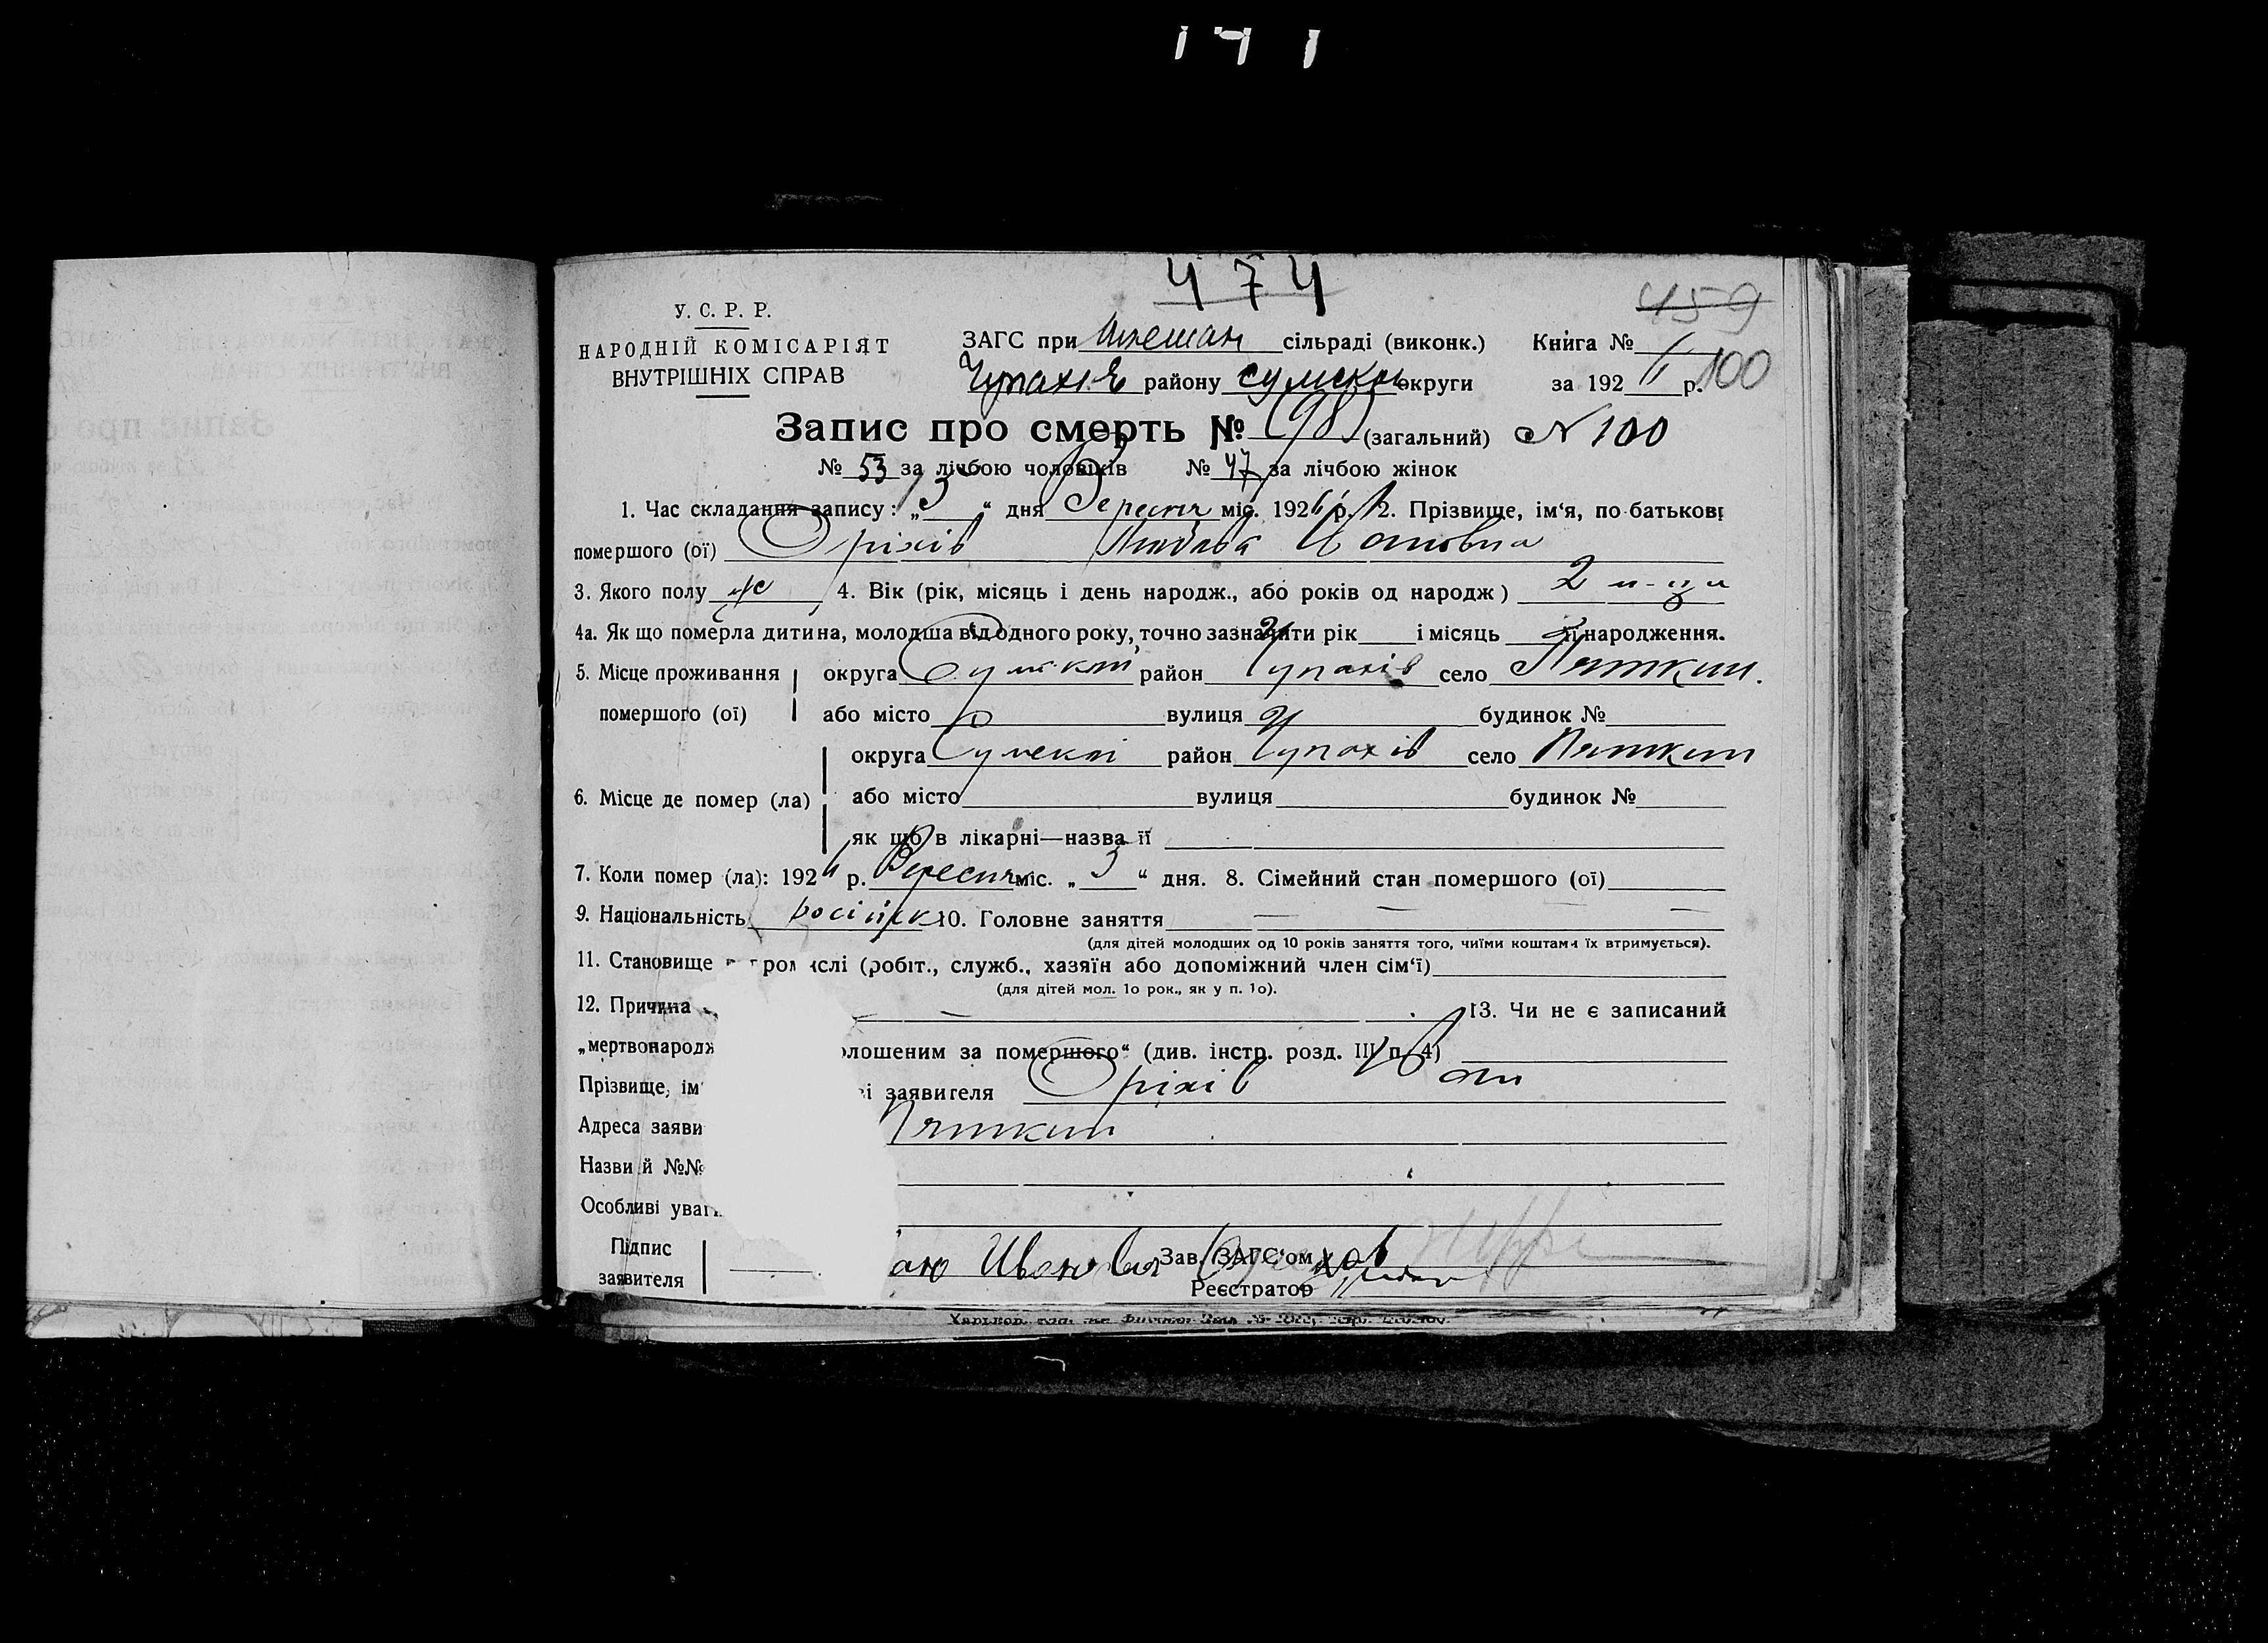 171
474
459
У. С. Р. Р.
НАРОДНІЙ КОМІСАРІЯТ
ВНУТРІШНІХ СПРАВ
ЗАГС при сільраді (виконк.) Книга №
100
Чупахів району Сумской округи за 1926 р.
Запис про смерть № (98) (загальний) N 100
№ 53 за лічбою чоловіків № 47 за лічбою жінок
1. Час складання запису: „3“ дня Вересня міс. 1926 р. 2. Прізвище, ім‘я, по-батькові
помершого (ої) Оріхів
3. Якого полу ж 4. Вік (рік, місяць і день народж., або років од народж) 2 м-ци
4а. Як що померла дитина, молодша від одного року, точно зазначити рік і місяць її народження.
5. Місце проживання округа Сумской район Чупахів село Пяткин.
помершого (ої) або місто вулиця будинок №
округа Сумской район Чупахів село Пяткин
6. Місце де помер (ла) або місто вулиця будинок №
як що в лікарні—назва її
7. Коли помер (ла): 1926 р. Вересня міс. „3“ дня. 8. Сімейний стан помершого (ої)
9. Національність російск 10. Головне заняття — — —
(для дітей молодших од 10 років заняття того, чиїми коштами їх втримується).
11. Становище в промислі (робіт., служб., хазяїн або допоміжний член сім‘ї)
(для дітей мол. 1о рок., як у п. 1о).
12. Причина 13. Чи не є записаний
„мертвонародж олошеним за помершого“ (див. інстр. розд. III п. 4)
Прізвище, ім‘ і заявителя Оріхів
Адреса заяви Пяткин
Назви й №№
Особливі уваги
Підпис
заявителя
Зав. ЗАГС‘ом
Реєстратор